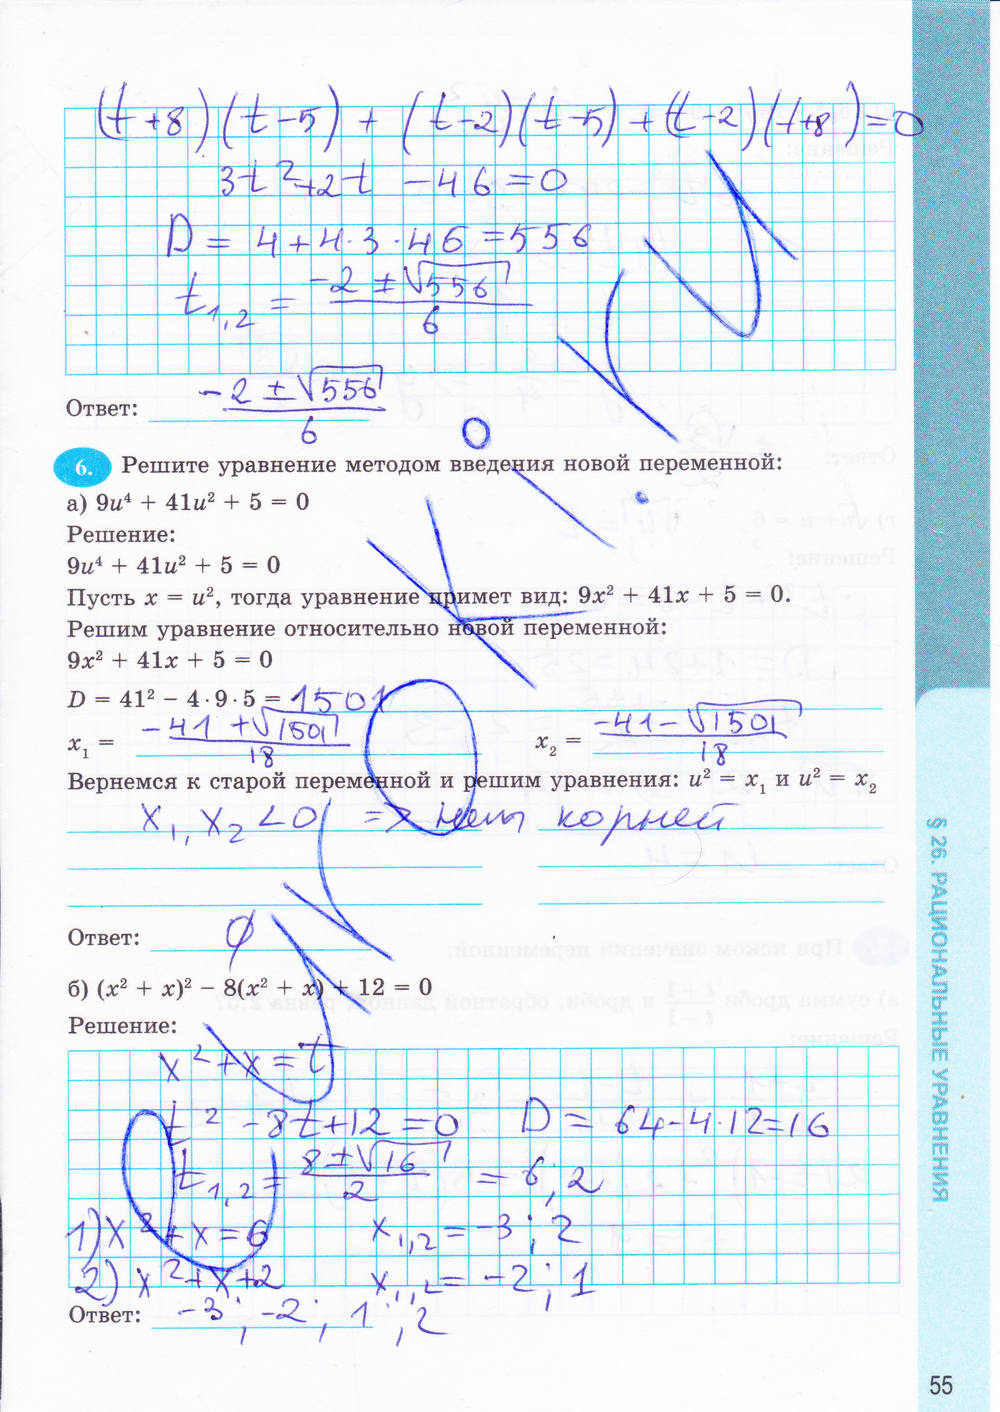 (t+8)(t-5) + (t-2)(t-5) + (t-2)(t+8) = 0
3t² + 2t - 46 = 0
D = 4 + 4·3·46 = 556
t₁,₂ = (-2 ± √556)/6
Ответ: (-2 ± √556)/6
6. Решите уравнение методом введения новой переменной:
а) 9u⁴ + 41u² + 5 = 0
Решение:
9u⁴ + 41u² + 5 = 0
Пусть x = u², тогда уравнение примет вид: 9x² + 41x + 5 = 0.
Решим уравнение относительно новой переменной:
9x² + 41x + 5 = 0
D = 41² − 4 · 9 · 5 = 1501
x₁ = (-41 + √1501)/18 x₂ = (-41 - √1501)/18
Вернемся к старой переменной и решим уравнения: u² = x₁ и u² = x₂
x₁, x₂ < 0 => нет корней
Ответ: ∅
б) (x² + x)² − 8(x² + x) + 12 = 0
Решение:
x² + x = t
t² - 8t + 12 = 0 D = 64 - 4·12 = 16
t₁,₂ = (8 ± √16)/2 = 6; 2
1) x² + x = 6 x₁,₂ = -3; 2
2) x² + x + 2 x₁,₂ = -2; 1
Ответ: -3; -2; 1; 2
§ 26. РАЦИОНАЛЬНЫЕ УРАВНЕНИЯ
55